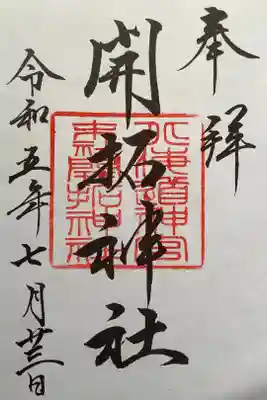 奉拝
開拓神社
北海道神宮
開拓神社
令和五年七月廿三日